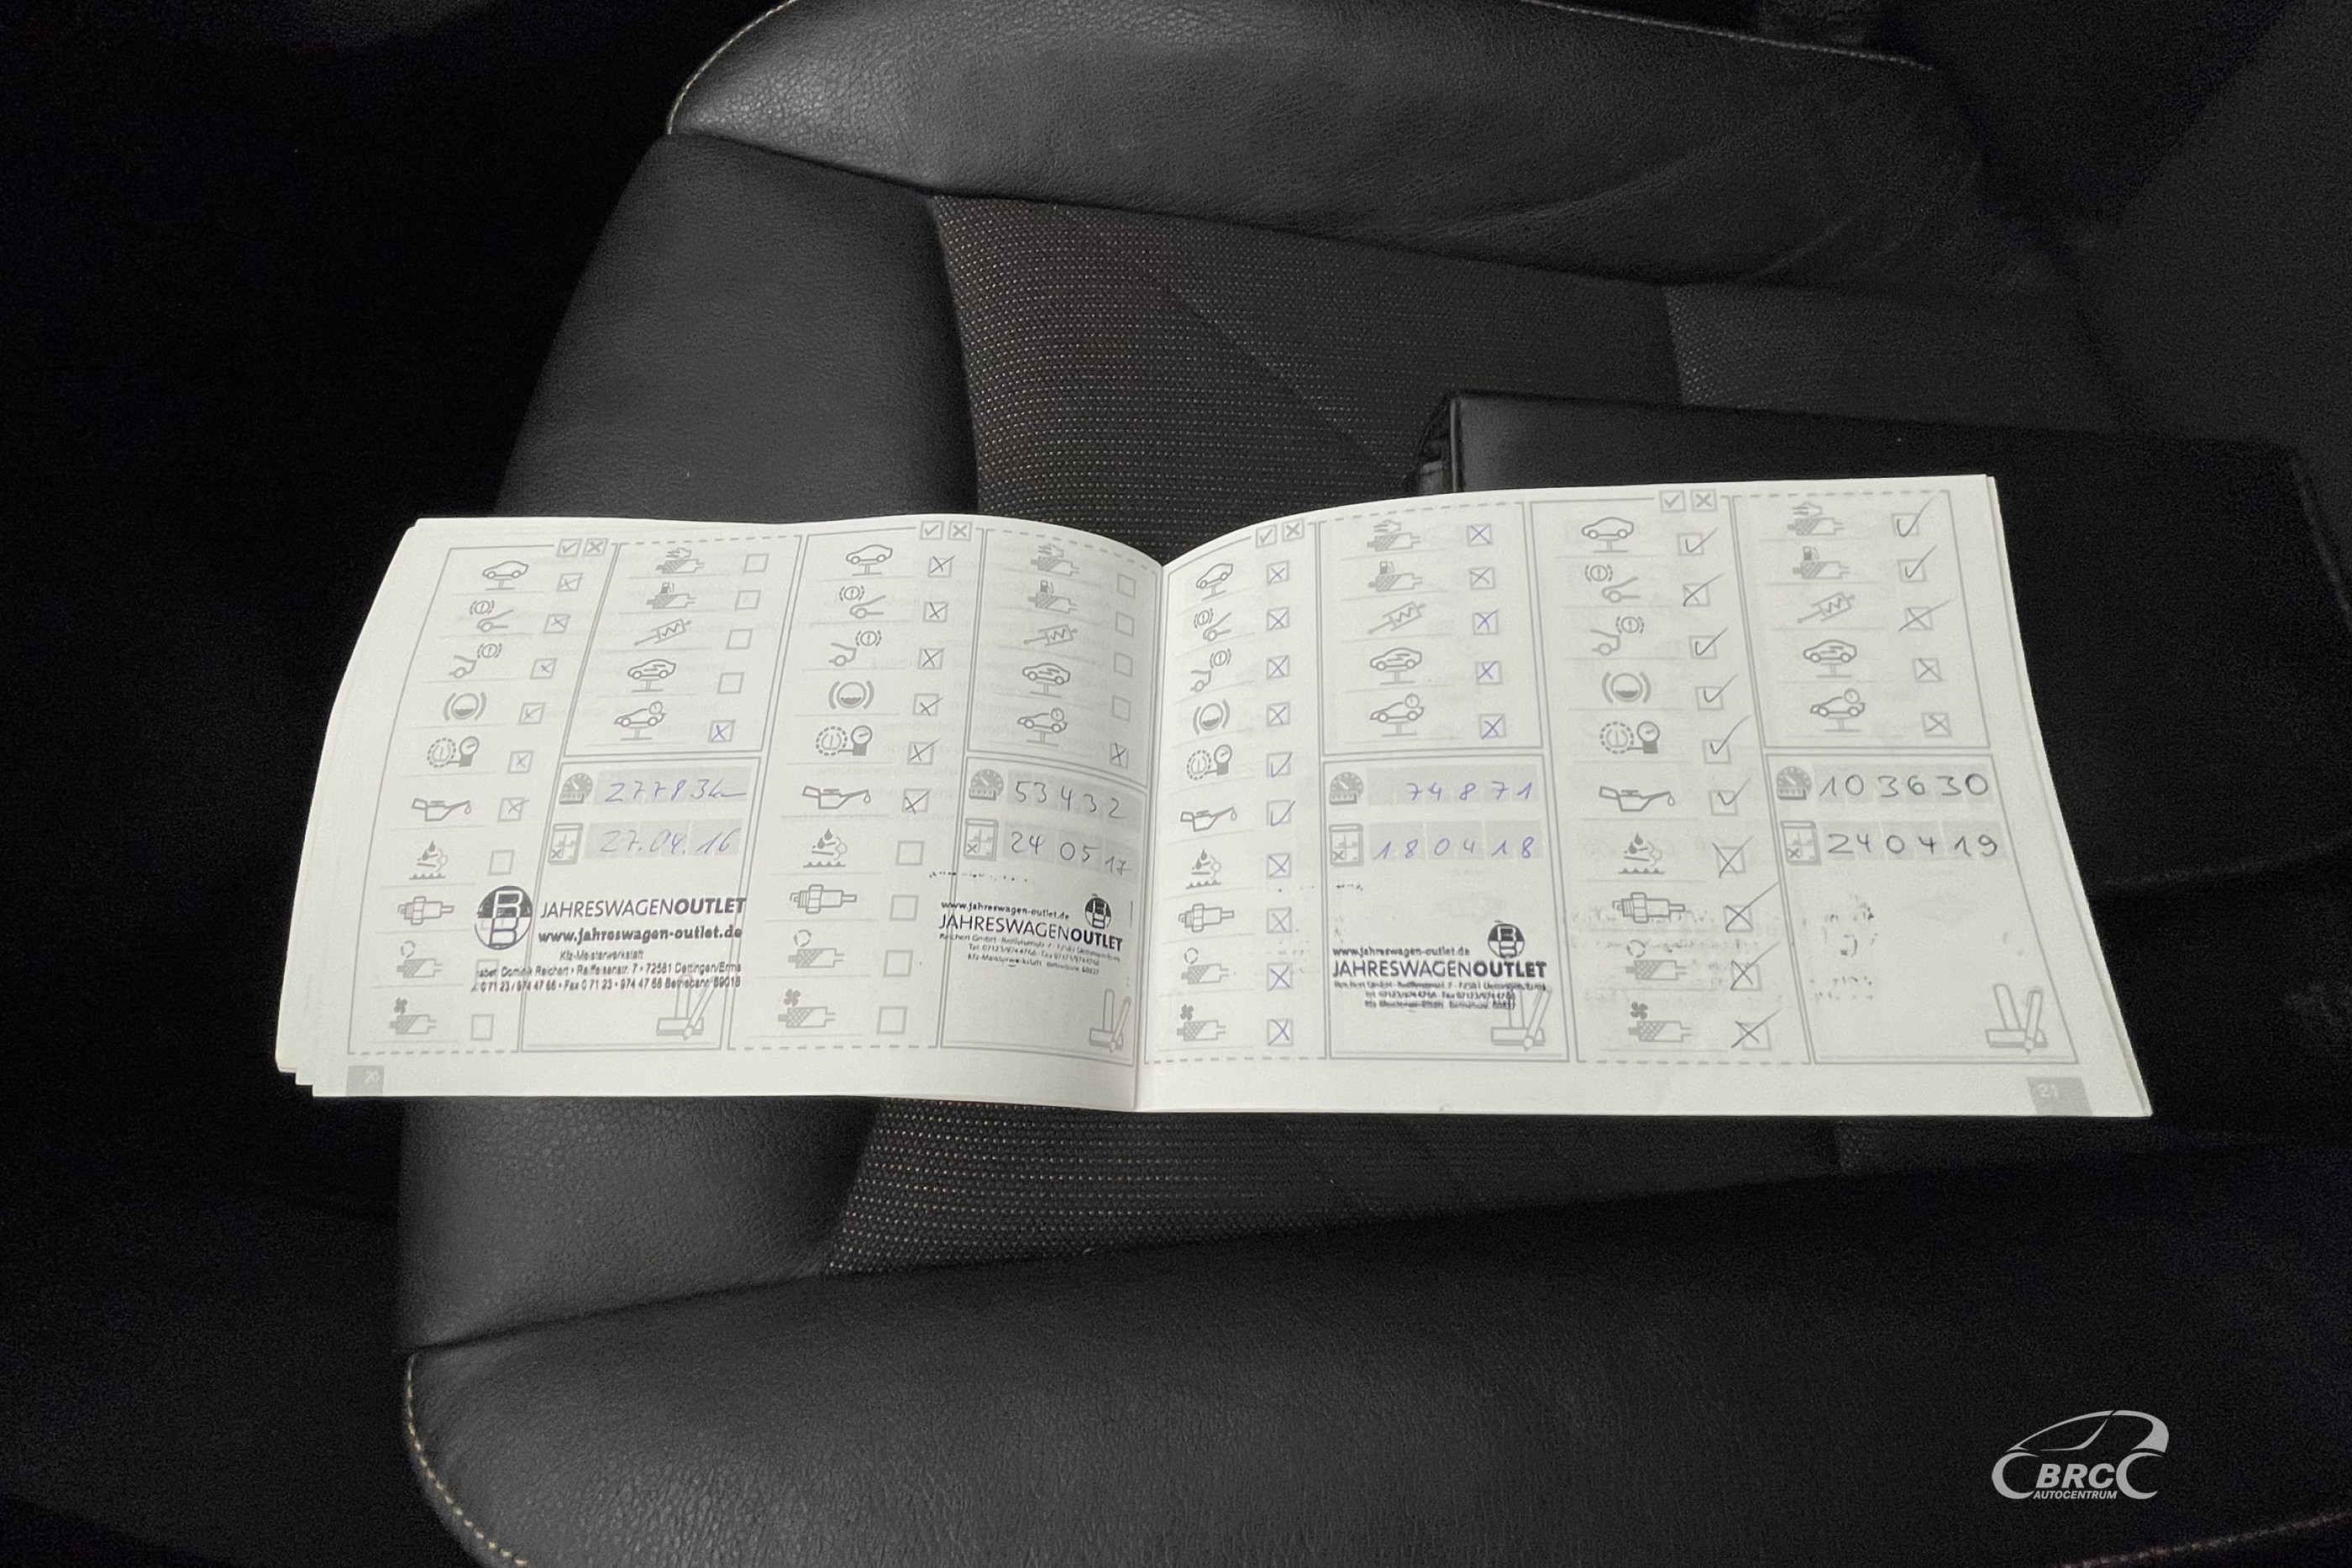 27783km
27.04.16
JAHRESWAGENOUTLET
www.jahreswagen-outlet.de
Kfz-Meisterwerkstatt
Dominik Reichert • Raiffeisenstr. 7 • 72581 Dettingen/Erms
0 71 23 / 974 47 66 • Fax 0 71 23 • 974 47 68 Betriebsnr. 69018
53432
24 05 17
www.jahreswagen-outlet.de
JAHRESWAGENOUTLET
Reichert GmbH · Raiffeisenstr. 7 · 72581 Dettingen/Erms
Kfz-Meisterwerkstatt
74871
180418
www.jahreswagen-outlet.de
JAHRESWAGENOUTLET
103630
240419
20
21
BRC
AUTOCENTRUM